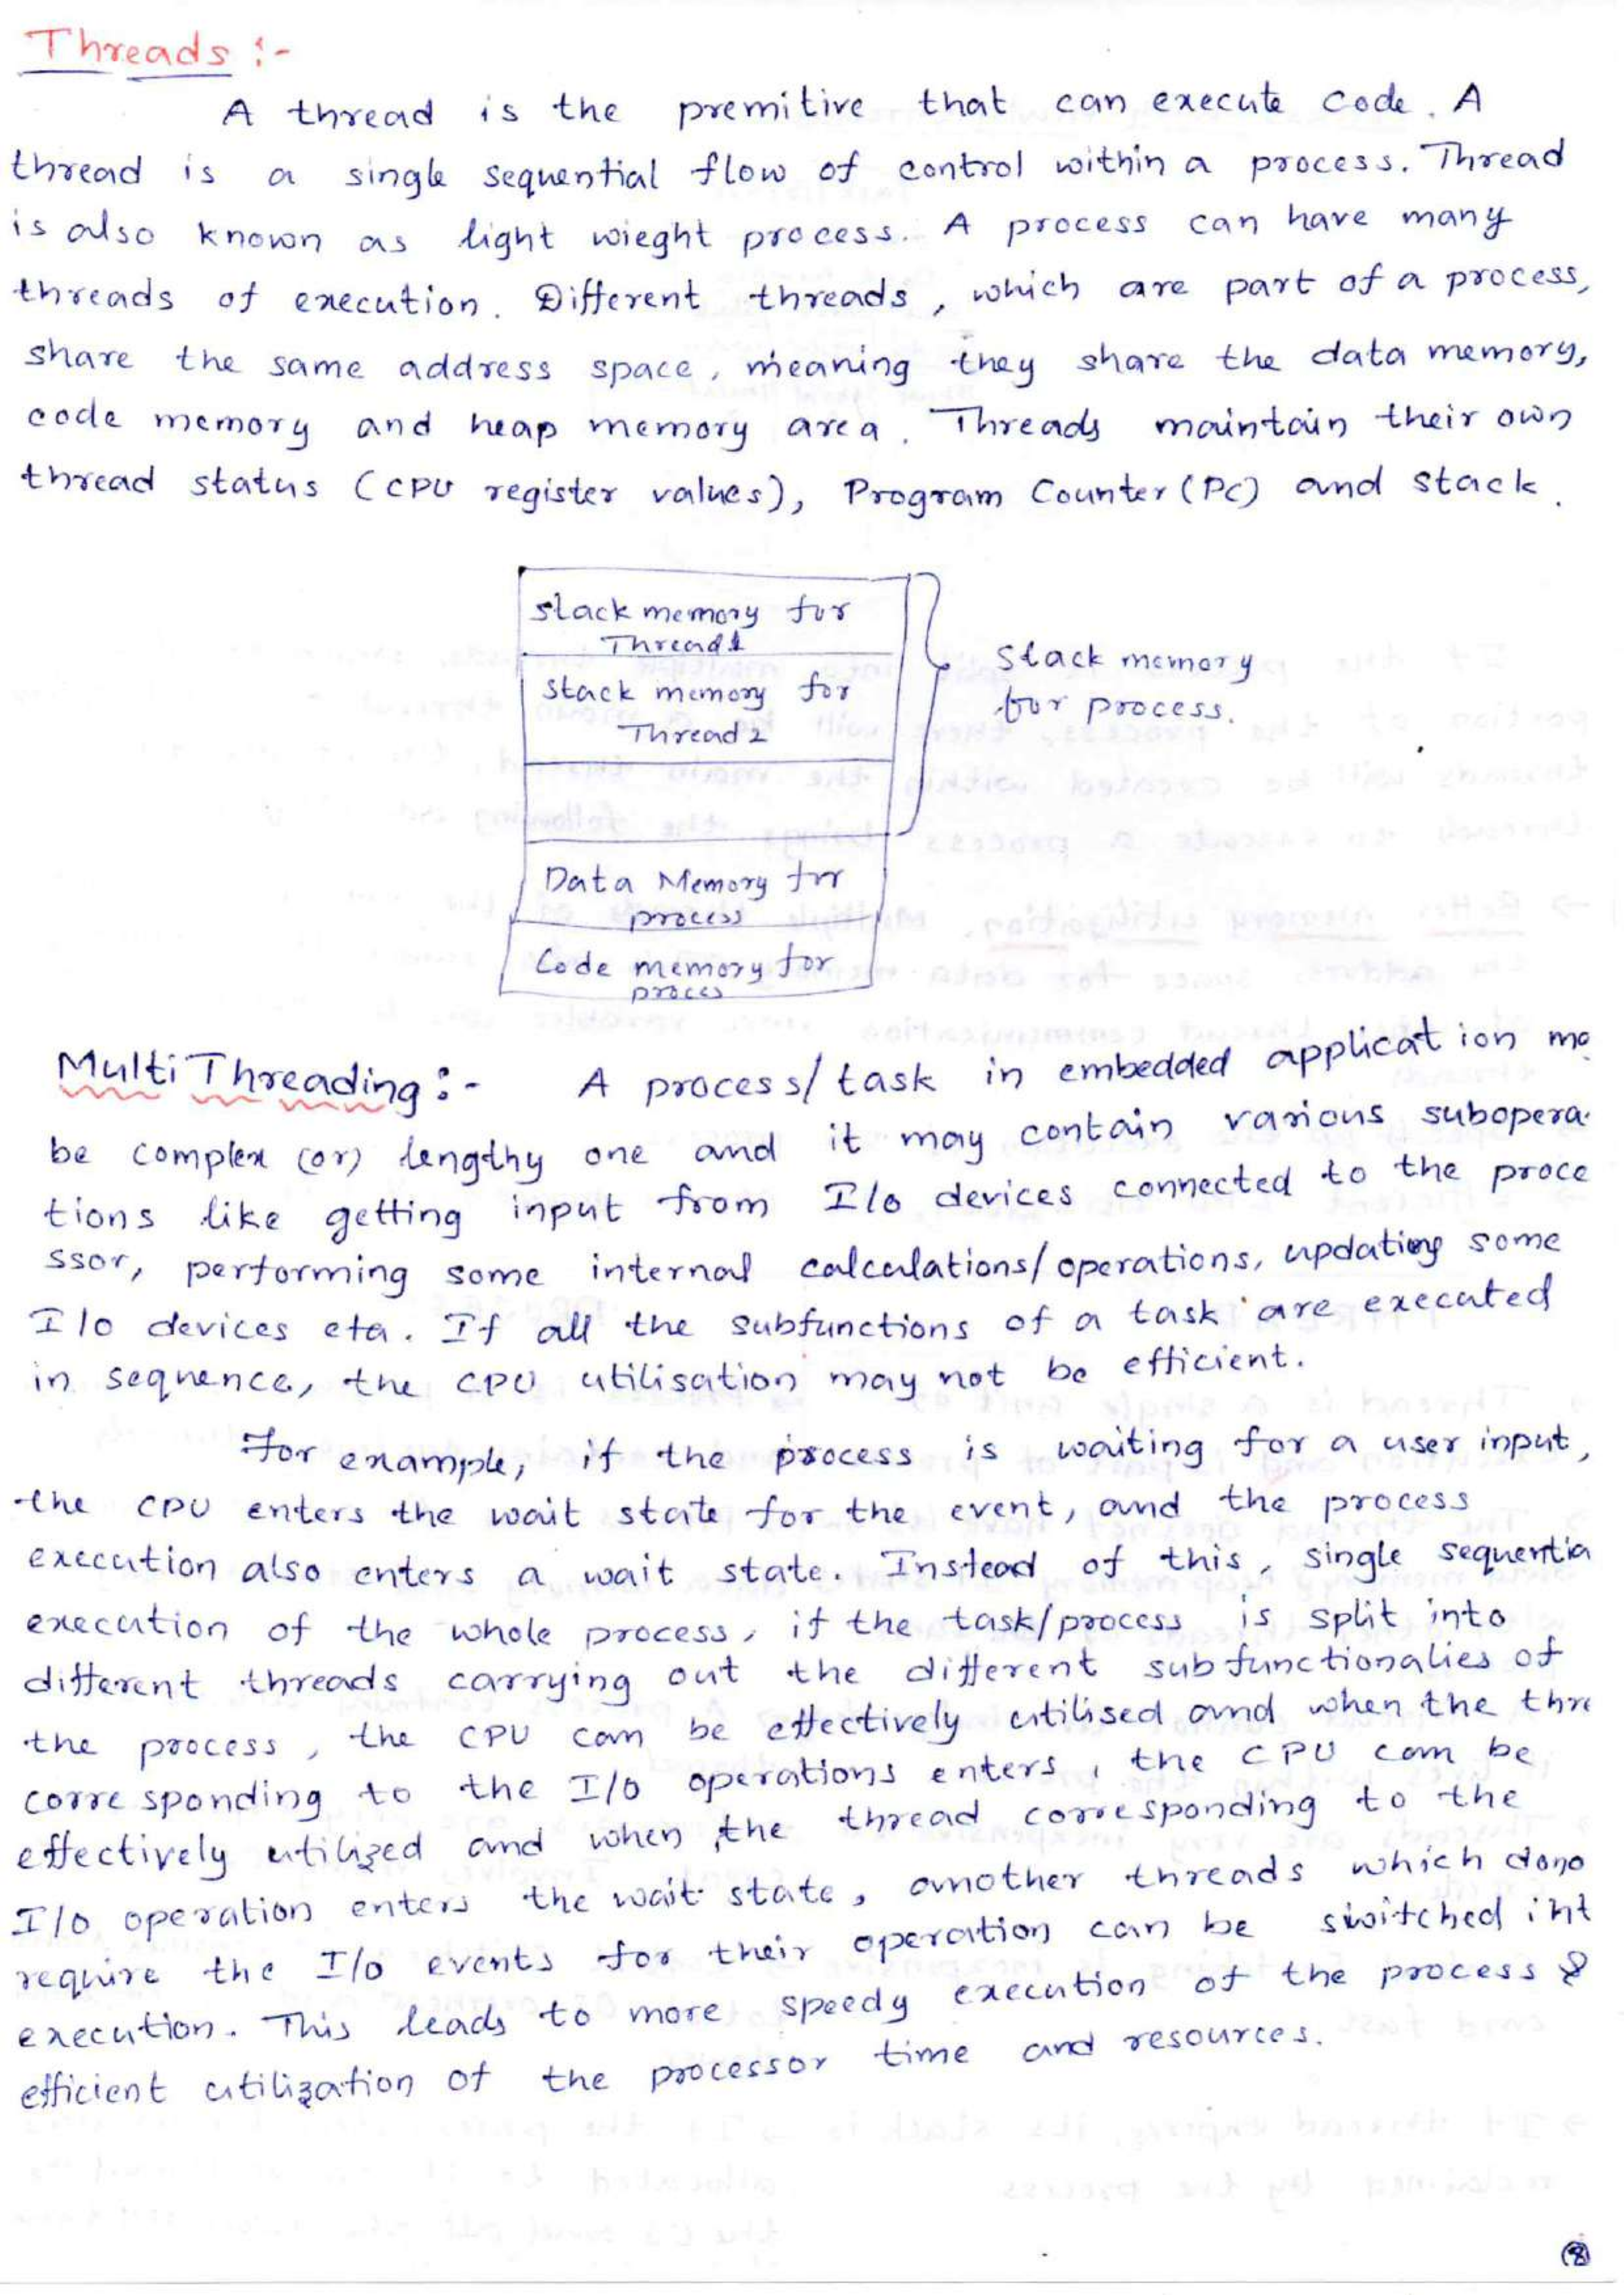 Threads :-
A thread is the premitive that can execute code. A
thread is a single sequential flow of control within a process. Thread
is also known as light wieght process. A process can have many
threads of execution. Different threads, which are part of a process,
share the same address space, meaning they share the data memory,
code memory and heap memory area. Threads maintain their own
thread status (CPU register values), Program Counter (PC) and stack.
stack memory for
Thread 1
stack memory for
Thread 2
Stack memory
for process.
Data Memory for
process
Code memory for
proces
Multi Threading :- A process/task in embedded application ma
be complex (or) lengthy one and it may contain various subopera-
tions like getting input from I/O devices connected to the proce
ssor, performing some internal calculations/operations, updating some
I/O devices etc. If all the subfunctions of a task are executed
in sequence, the CPU utilisation may not be efficient.
For example, if the process is waiting for a user input,
the CPU enters the wait state for the event, and the process
execution also enters a wait state. Instead of this, single sequentia
execution of the whole process, if the task/process is split into
different threads carrying out the different subfunctionalies of
the process, the CPU can be effectively utilised and when the thre
corresponding to the I/O operations enters, the CPU can be
effectively utilized and when the thread corresponding to the
I/O operation enters the wait state, another threads which dono
require the I/O events for their operation can be switched int
execution. This leads to more speedy execution of the process &
efficient utilization of the processor time and resources.
8